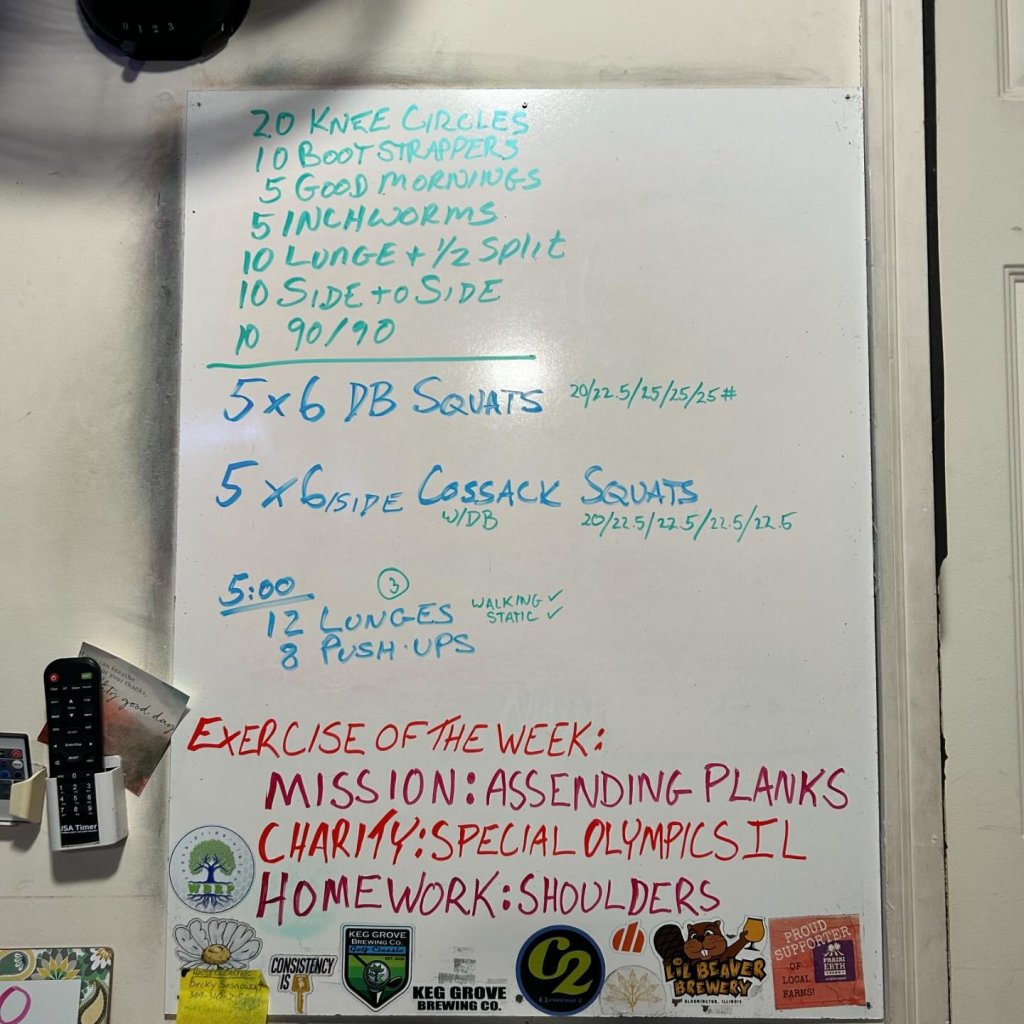 0 1 2 3
20 KNEE CIRCLES
10 BOOTSTRAPPERS
5 GOOD MORNINGS
5 INCHWORMS
10 LUNGE + 1/2 SPlit
10 SIDE to SIDE
10 90/90
5x6 DB SQUATS 20/22.5/25/25/25#
5x6/SIDE COSSACK SQUATS
W/DB 20/22.5/22.5/22.5/22.5
5:00 3
12 LUNGES WALKING ✓
STATIC ✓
8 PUSH-UPS
EXERCISE OF THE WEEK:
MISSION: ASSENDING PLANKS
CHARITY: SPECIAL OLYMPICS IL
HOMEWORK: SHOULDERS
can breathe
for your thanks.
good day
USA Timer
WBRP
BE KIND
CONSISTENCY
IS
KEG GROVE
BREWING CO.
KEG GROVE
BREWING CO.
C2
LIL BEAVER
BREWERY
BLOOMINGTON, ILLINOIS
PROUD
SUPPORTER
OF
LOCAL
FARMS!
PRAIRI
ERTH
Becky